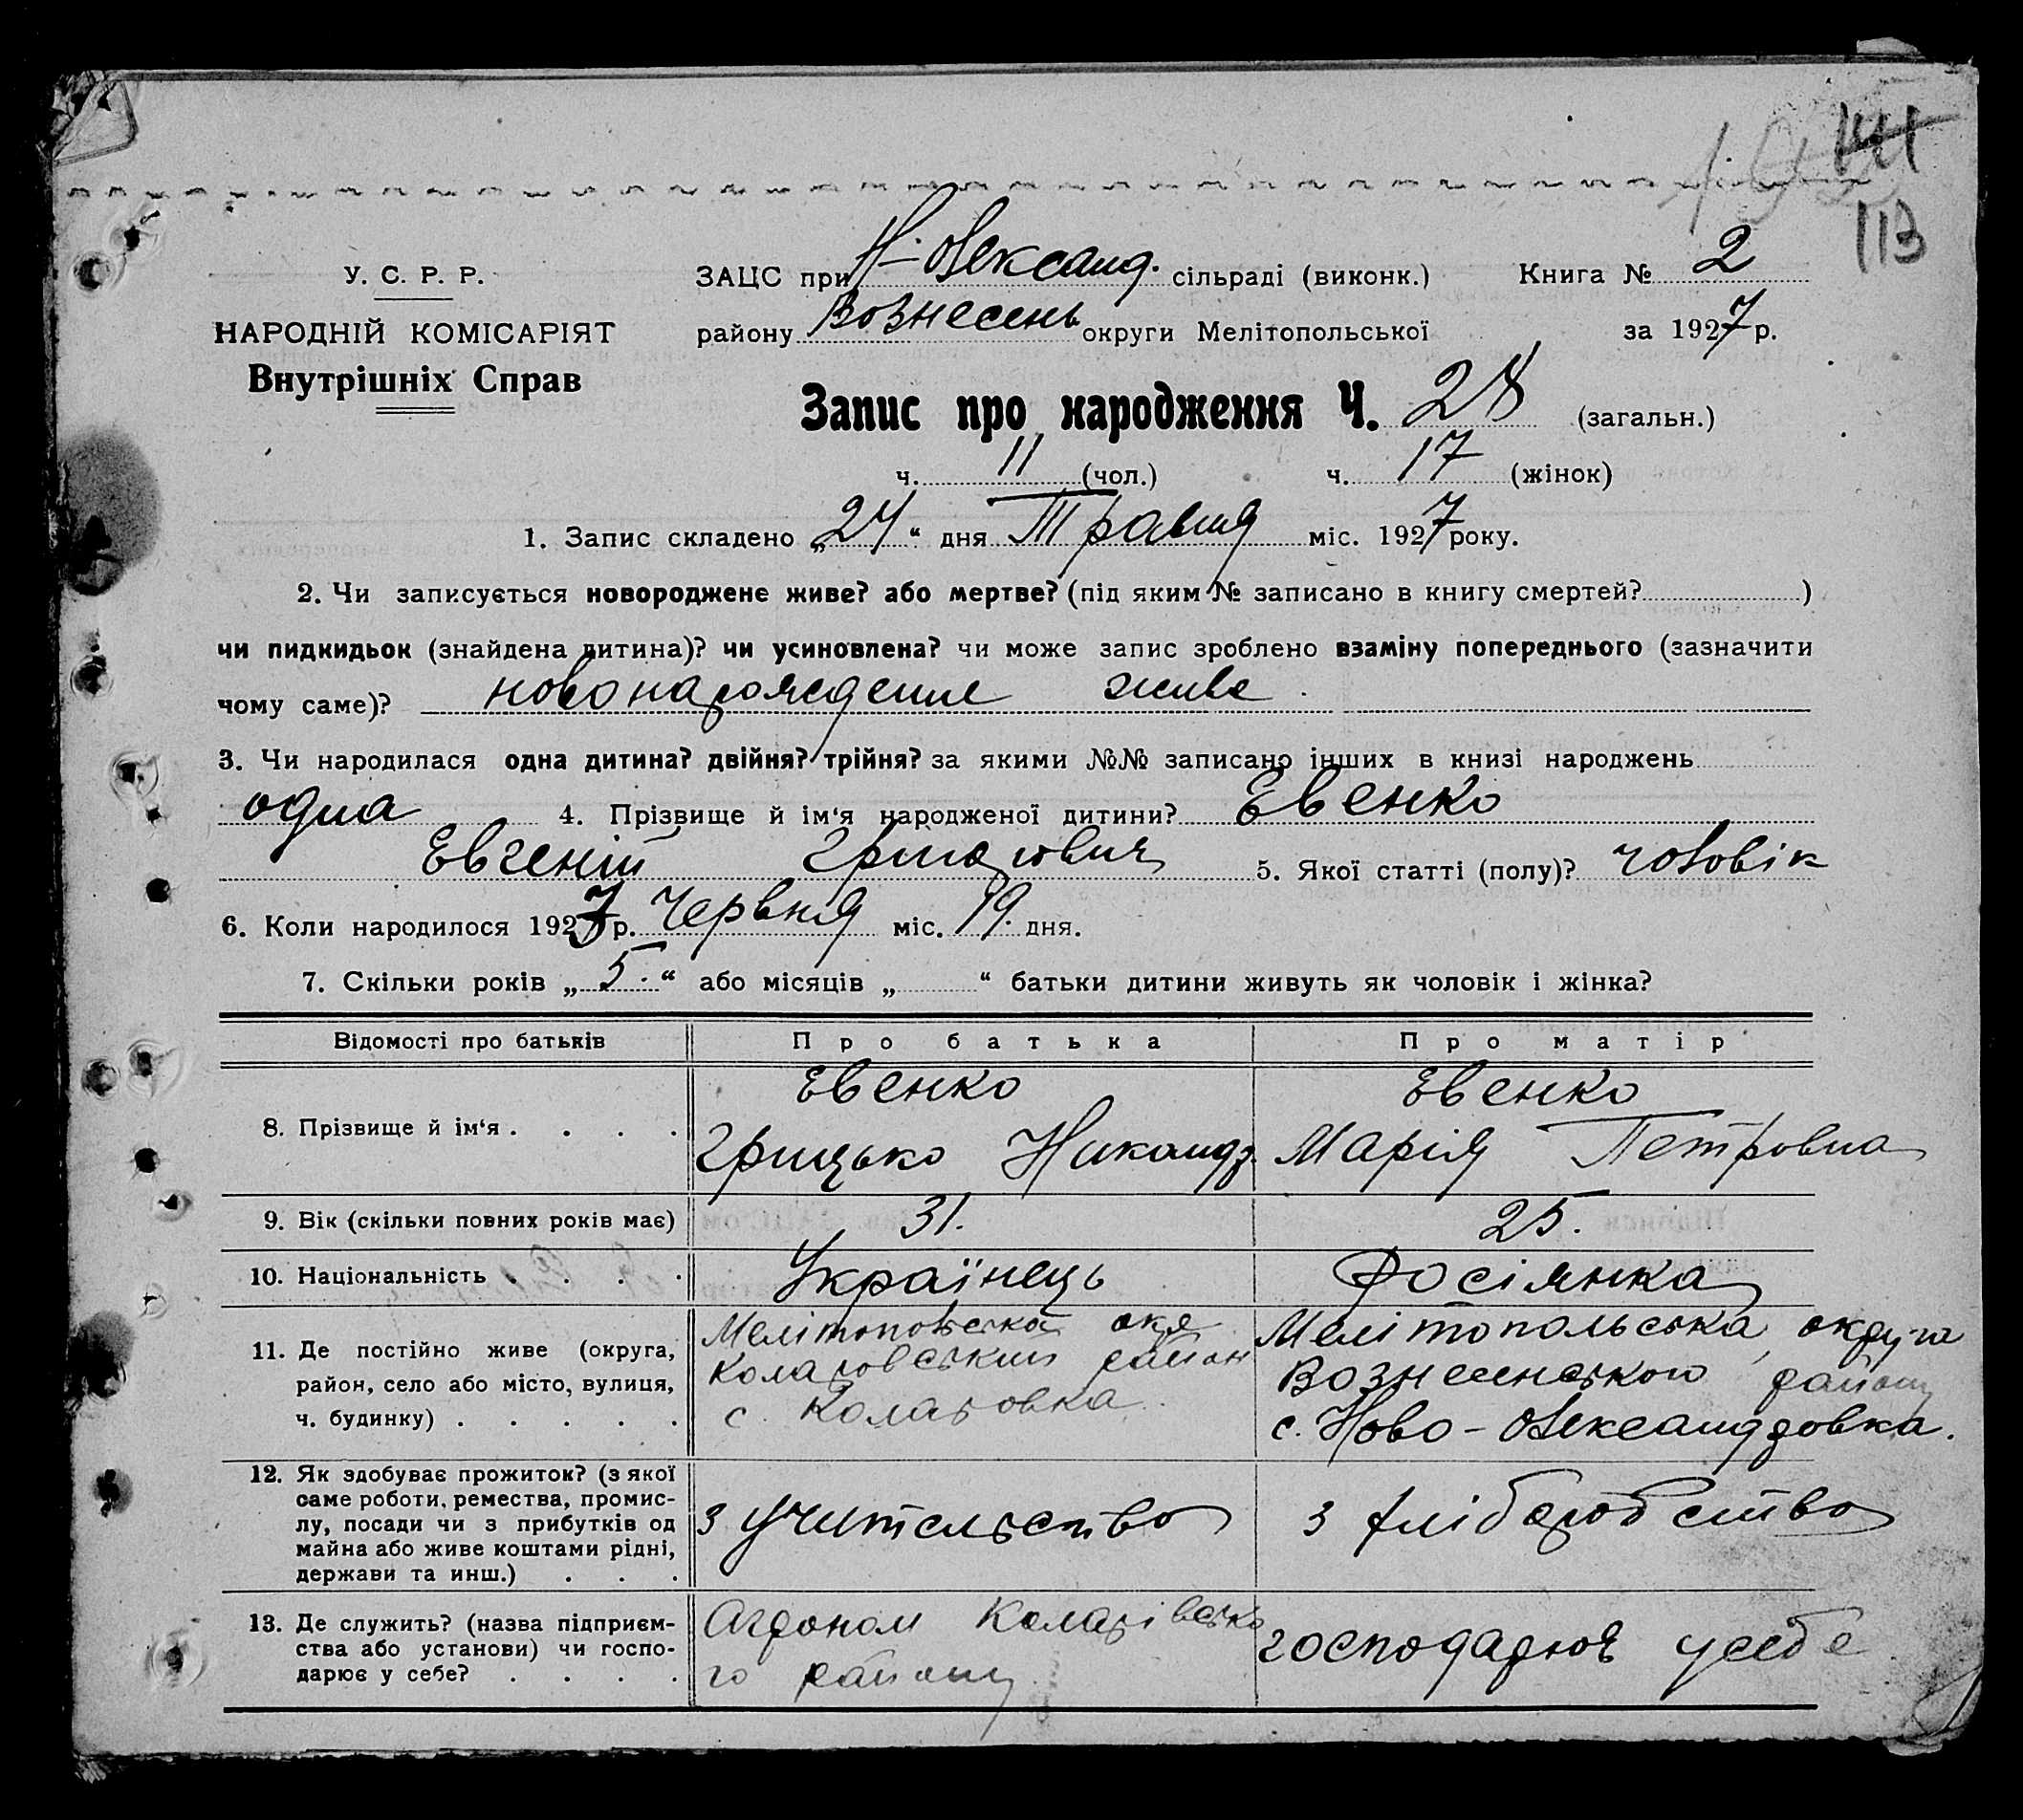 141
113
У. С. Р. Р.
НАРОДНІЙ КОМІСАРІЯТ
Внутрішніх Справ
ЗАЦС при Н-Олександ. сільраді (виконк.) Книга № 2
району Вознесень округи Мелітопольської за 1927 р.
Запис про народження Ч. 28 (загальн.)
ч. 11 (чол.) ч. 17 (жінок)
1. Запис складено „24“ дня Травня міс. 1927 року.
2. Чи записується новороджене живе? або мертве? (під яким № записано в книгу смертей? )
чи пидкидьок (знайдена дитина)? чи усиновлена? чи може запис зроблено взаміну попереднього (зазначити
чому саме)? новонарождение живе.
3. Чи народилася одна дитина? двійня? трійня? за якими №№ записано інших в книзі народжень
одна 4. Прізвище й ім‘я народженої дитини? Евенко
Евгеній 5. Якої статті (полу)? чоловік
6. Коли народилося 1927 р. Червня міс. 19. дня.
7. Скільки років „5.“ або місяців „ “ батьки дитини живуть як чоловік і жінка?
Відомості про батьків Про батька Про матір
8. Прізвище й ім‘я . . . . Евенко Грицько Никандр. Евенко Марія Петровна
9. Вік (скільки повних років має) 31. 25.
10. Національність . . . . Українець Росіянка
11. Де постійно живе (округа, район, село або місто, вулиця, ч. будинку) . . . . . Мелітопольска окр Коларовський район с. Коларовка. Мелітопольська округа Вознесенського району с. Ново-Олександровка.
12. Як здобуває прожиток? (з якої саме роботи, ремества, промислу, посади чи з прибутків од майна або живе коштами рідні, держави та инш.) . . . з учительство з хліборобство
13. Де служить? (назва підприємства або установи) чи господарює у себе? . . . . Агроном Коларівсько го району господарює усебе